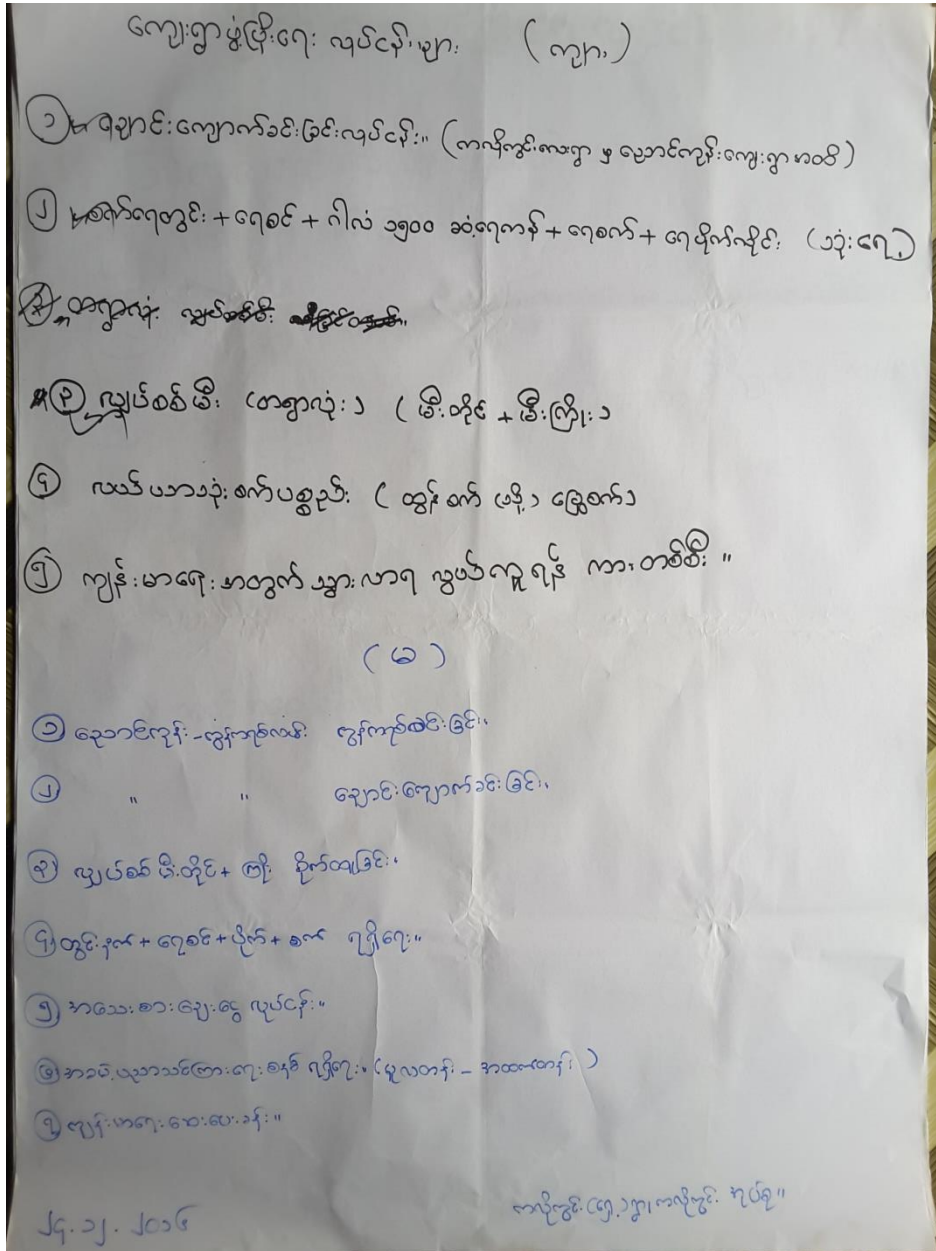 ကျေးရွာဖွံ့ဖြိုးရေး လုပ်ငန်းများ (ကျား)
၁ ချောင်းကျောက်ခင်းခြင်းလုပ်ငန်း။ (ကလိုကွင်းလေးရွာ မှ ညောင်ကုန်းကျေးရွာ အထိ)
၂ စက်ရေတွင်း + ရေစင် + ဂါလံ ၁၅၀၀ ဆံ့ရေကန် + ရေစက် + ရေပိုက်လိုင်း (၁သုံးရေ)
၃ လျှပ်စစ်မီး (တရွာလုံး) (မီးတိုင် + မီးကြိုး)
၄ လယ်ယာသုံးစက်ပစ္စည်း (ထွန်စက် (သို့) ခြွေစက်)
၅ ကျန်းမာရေးအတွက် သွားလာရ လွယ်ကူရန် ကားတစ်စီး။
(မ)
၁ ညောင်ကုန်း - ကွန်ကရစ်လမ်း ကွန်ကရစ်ခင်းခြင်း၊
၂ " " ချောင်းကျောက်ခင်းခြင်း၊
၃ လျှပ်စစ်မီးတိုင် + ကြိုး စိုက်ထူခြင်း၊
၄ တွင်းနက် + ရေစင် + ပိုက် + စက် ရရှိရေး။
၅ အသေးစားချေးငွေ လုပ်ငန်း။
၆ အခမဲ့ပညာသင်ကြားရေးစနစ် ရရှိရေး။ (မူလတန်း - အထက်တန်း)
၇ ကျန်းမာရေးဆေးပေးခန်း။
ကလိုကွင်း(ရှေ့)ရွာ၊ ကလိုကွင်း အုပ်စု။
၂၄.၁၂.၂၀၁၆